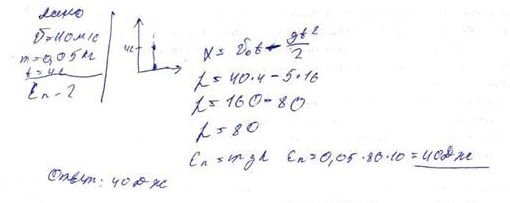 Дано
v=40м/с
m=0,05кг
t=4с
Eп-?
4с
h = v₀t - gt²/2
h = 40·4-5·16
h = 160-80
h = 80
Eп = mgh Eп=0,05·80·10=40Дж
Ответ: 40Дж